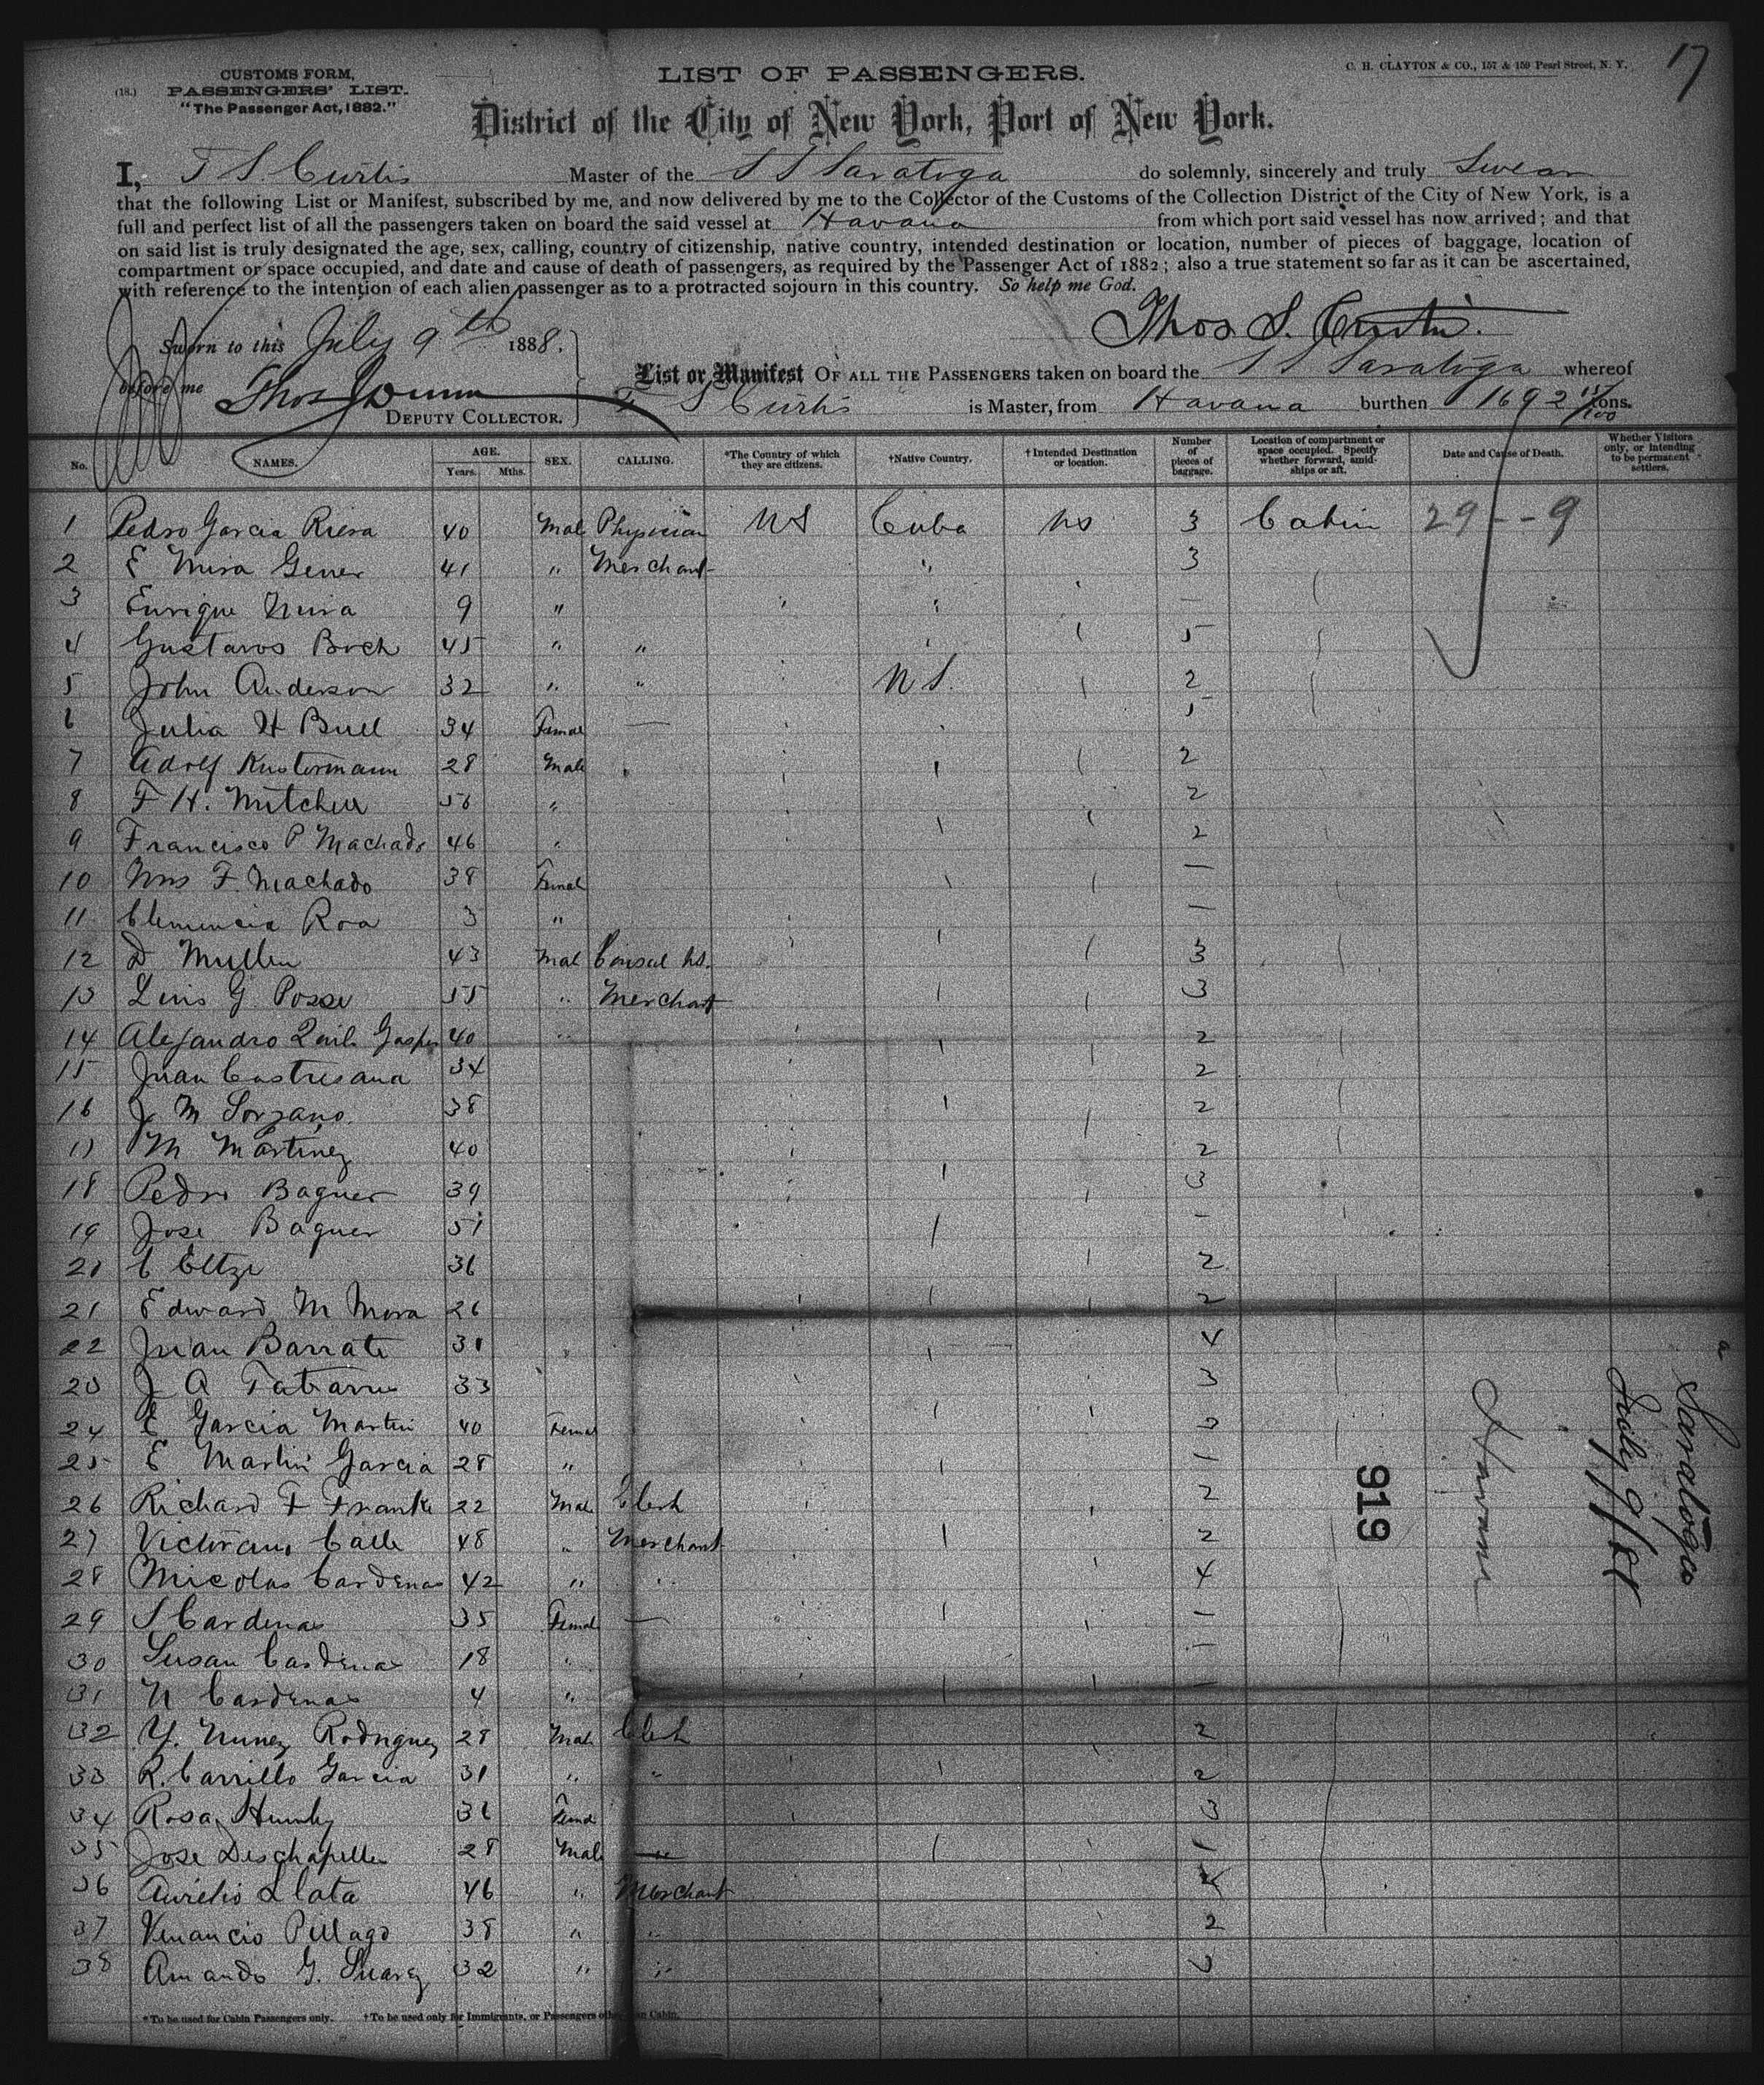 17
CUSTOMS FORM,
(18.) PASSENGERS' LIST.
"The Passenger Act, 1882."
LIST OF PASSENGERS.
C. H. CLAYTON & CO., 157 & 159 Pearl Street, N. Y.
District of the City of New York, Port of New York.
I, T S Curtis Master of the S S Saratoga do solemnly, sincerely and truly Swear
that the following List or Manifest, subscribed by me, and now delivered by me to the Collector of the Customs of the Collection District of the City of New York, is a
full and perfect list of all the passengers taken on board the said vessel at Havana from which port said vessel has now arrived; and that
on said list is truly designated the age, sex, calling, country of citizenship, native country, intended destination or location, number of pieces of baggage, location of
compartment or space occupied, and date and cause of death of passengers, as required by the Passenger Act of 1882; also a true statement so far as it can be ascertained,
with reference to the intention of each alien passenger as to a protracted sojourn in this country. So help me God.
Thos S. Curtis.
Sworn to this July 9th 1888.
before me Thos J Dunn
DEPUTY COLLECTOR.
List or Manifest OF ALL THE PASSENGERS taken on board the S S Saratoga whereof
T S Curtis is Master, from Havana burthen 1692 15/100 tons.
No. NAMES. AGE. Years. Mths. SEX. CALLING. *The Country of which they are citizens. †Native Country. †Intended Destination or location. Number of pieces of baggage. Location of compartment or space occupied. Specify whether forward, amidships or aft. Date and Cause of Death. Whether Visitors only, or intending to be permanent settlers.
1 Pedro Garcia Riera 40 Mal Physician US Cuba US 3 Cabin 29 - - 9
2 E Mira Gener 41 " Merchant " 3
3 Enrique Mira 9 " " —
4 Gustavos Boch 45 " " 5
5 John Anderson 32 " " U S. 2
6 Julia H Bull 34 Femal — 5
7 Adolf Kustermann 28 Male 2
8 F H. 56 " 2
9 Francisco P Machado 46 " 2
10 Mrs F. Machado 38 Femal —
11 Clemencia Roa 3 " —
12 D Mullen 43 Mal Consul US. 3
13 Luis G. Posse 55 " Merchant 3
14 Alejandro 40 " 2
15 Juan Castresana 34 2
16 J M Sorzano 38 2
17 M Martinez 40 2
18 Pedro Baguer 39 3
19 Jose Baguer 51 —
20 C Eltze 36 2
21 Edward M Mora 26 2
22 Juan Barrate 31 4
23 J A 33 3
24 E Garcia Martin 40 Femal 3
25 E Martin Garcia 28 " 1
26 Richard F Franke 22 Mal Clerk 2
27 Victoriano Calle 48 " Merchant 2
28 Nicolas Cardenas 42 " " 4
29 S Cardenas 35 Femal — —
30 Susan Cardenas 18 " —
31 N Cardenas 4 " —
32 Y. Nunez Rodriguez 28 Mal Clerk 2
33 R. Carrillo Garcia 31 " " 2
34 Rosa 36 Femal 3
35 Jose Deschapelles 28 Male — 1
36 Aurelio Llata 46 " Merchant 4
37 Venancio Pillago 38 " " 2
38 Amando G. Suarez 32 " " 3
*To be used for Cabin Passengers only. †To be used only for Immigrants, or Passengers other than Cabin.
919
Havana
Saratoga
July 9/88